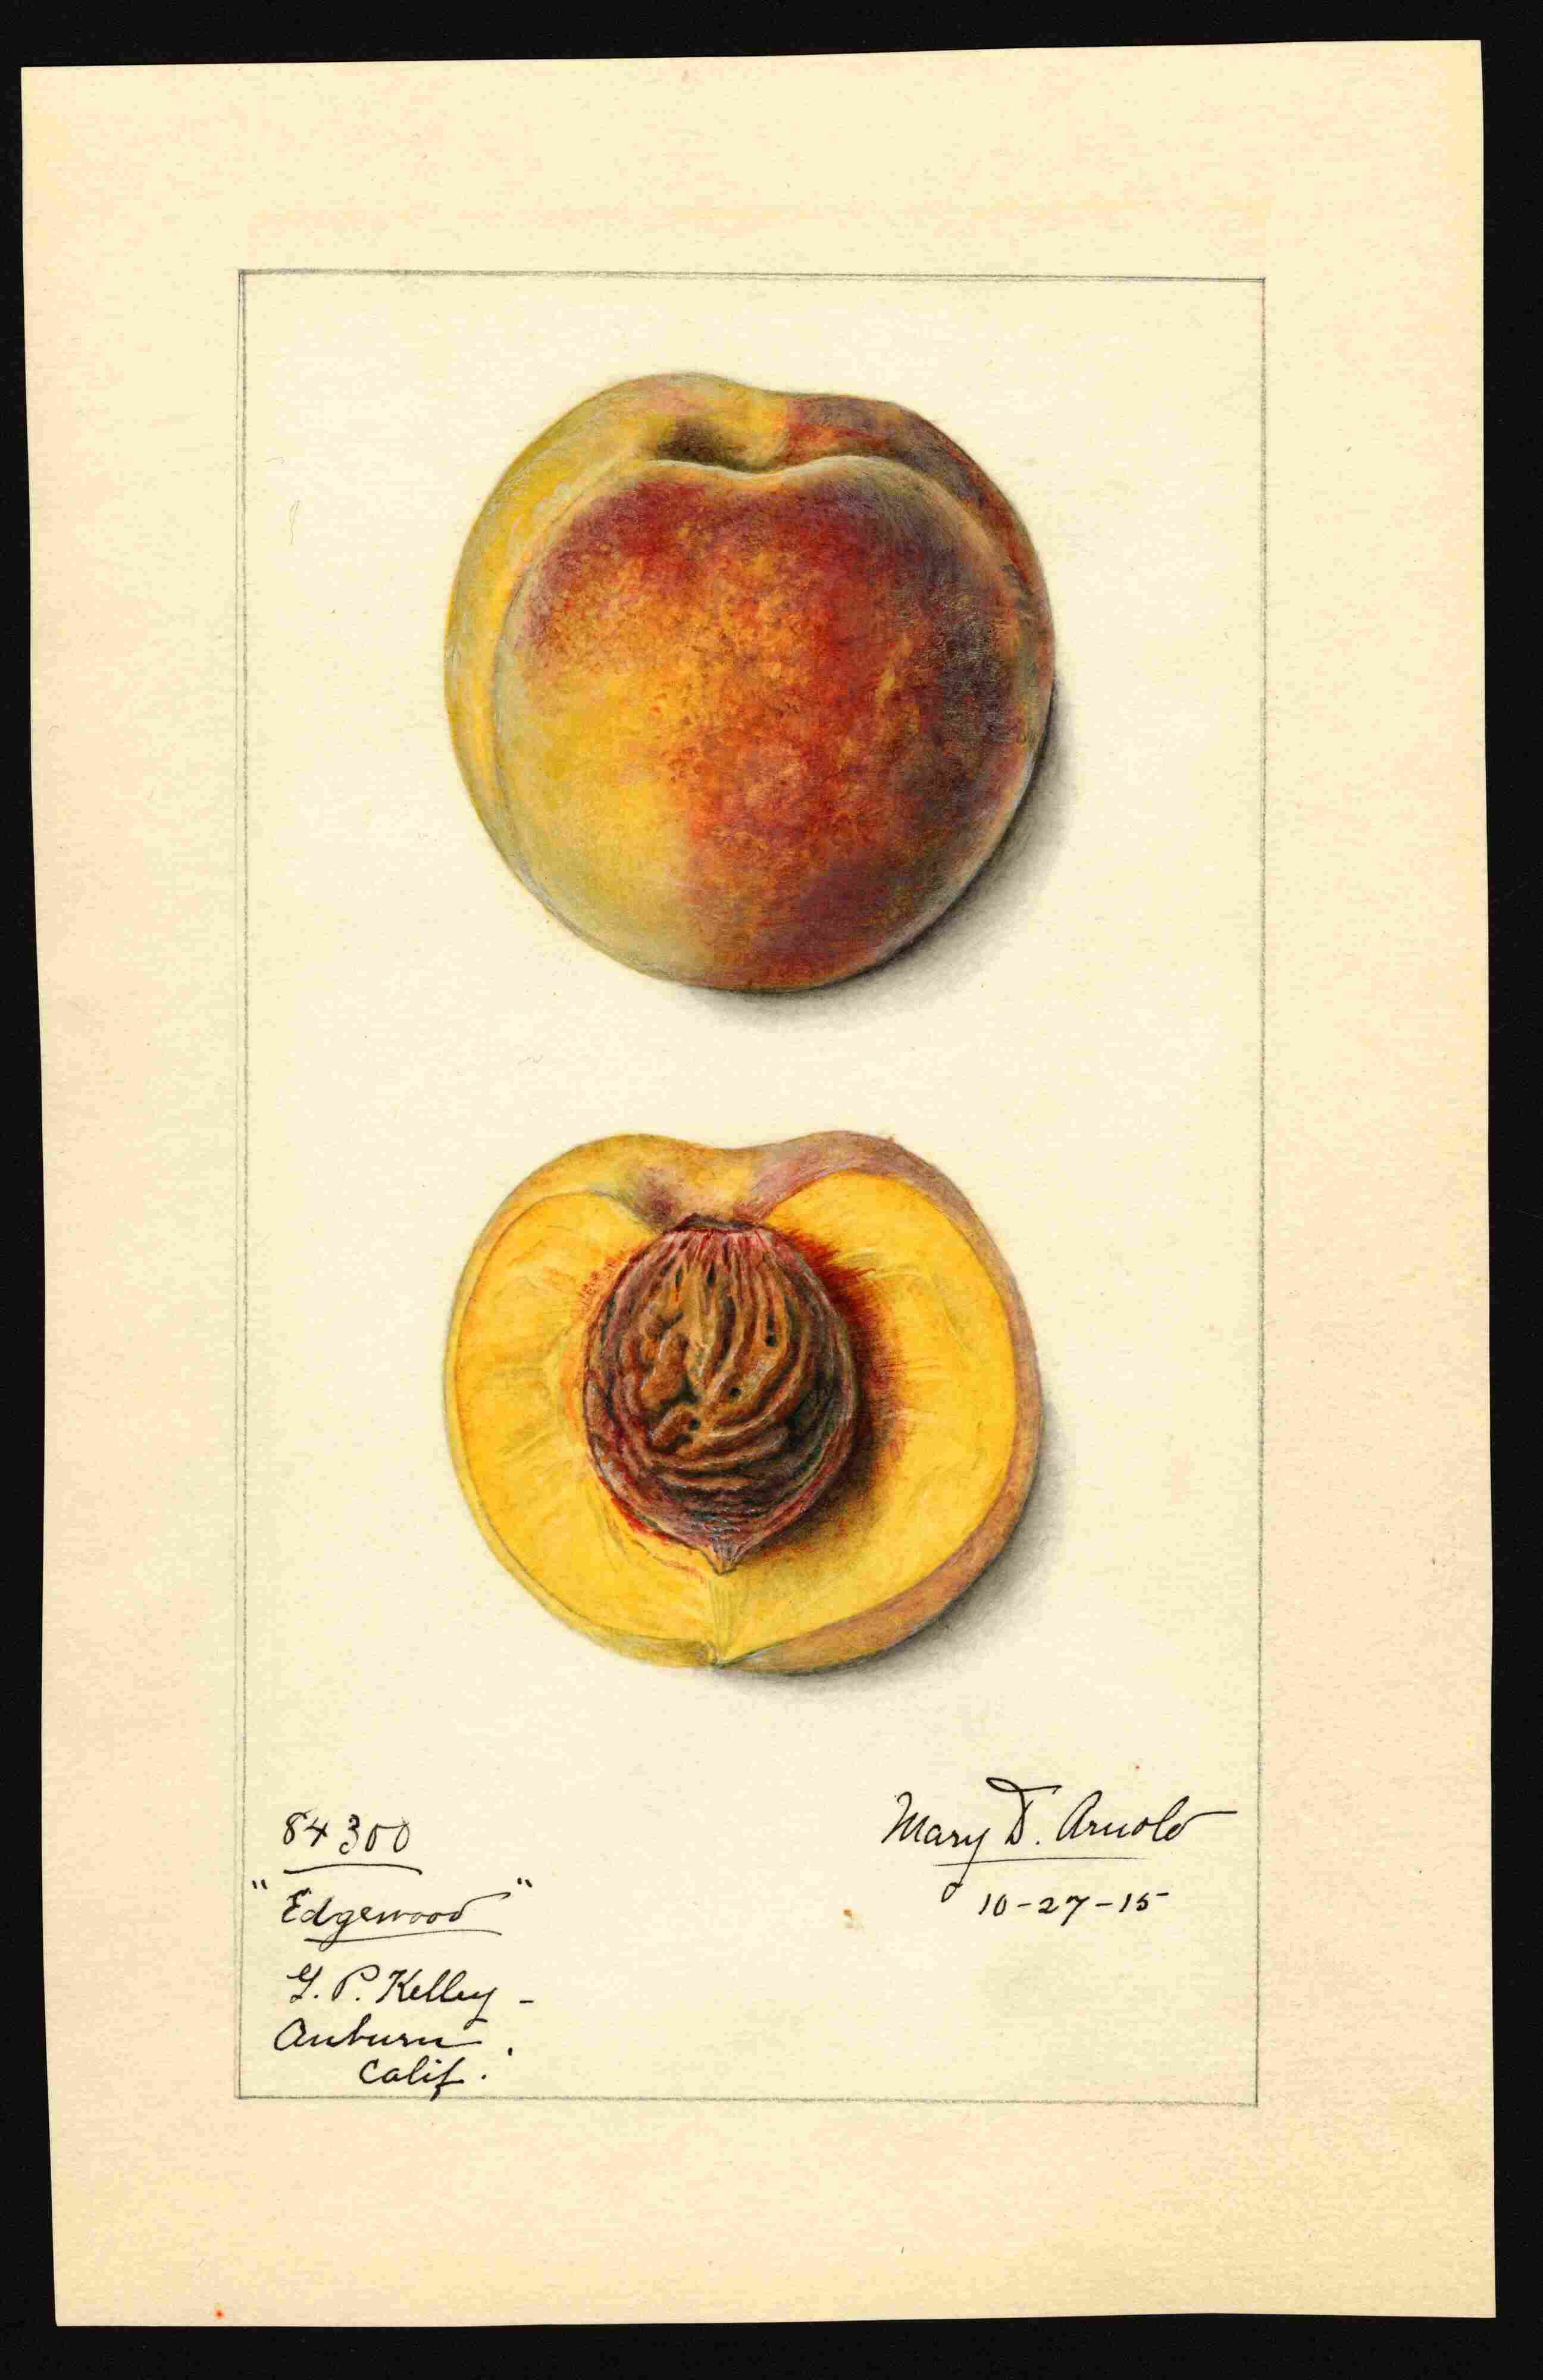 84300
"Edgewood"
G. P. Kelley -
Auburn.
Calif.
Mary D. Arnold
10-27-15